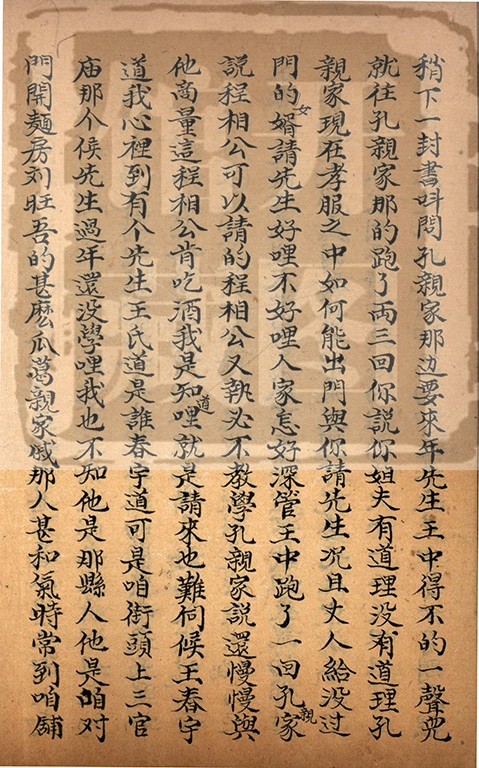 稍下一封書呌問孔親家那边要來年先生王中得不的一聲児
就往孔親家那的跑了両三回你説你姐夫有道理没有道理孔
親家現在孝服之中如何能出門與你請先生况且丈人給没过
門的女婿請先生好哩不好哩人家怎好深管王中跑了一回孔親家
説程相公可以請的程相公又執必不教學孔親家説還慢慢與
他商量這程相公肯吃酒我是知道哩就是請來也難伺候王春宇
道我心裡到有个先生王氏道是誰春宇道可是咱街頭上三官
庙那个侯先生過年還没學哩我也不知他是那縣人他是咱对
門開麺房刘旺吾的甚麽瓜葛親家戚那人甚和氣時常到咱舖